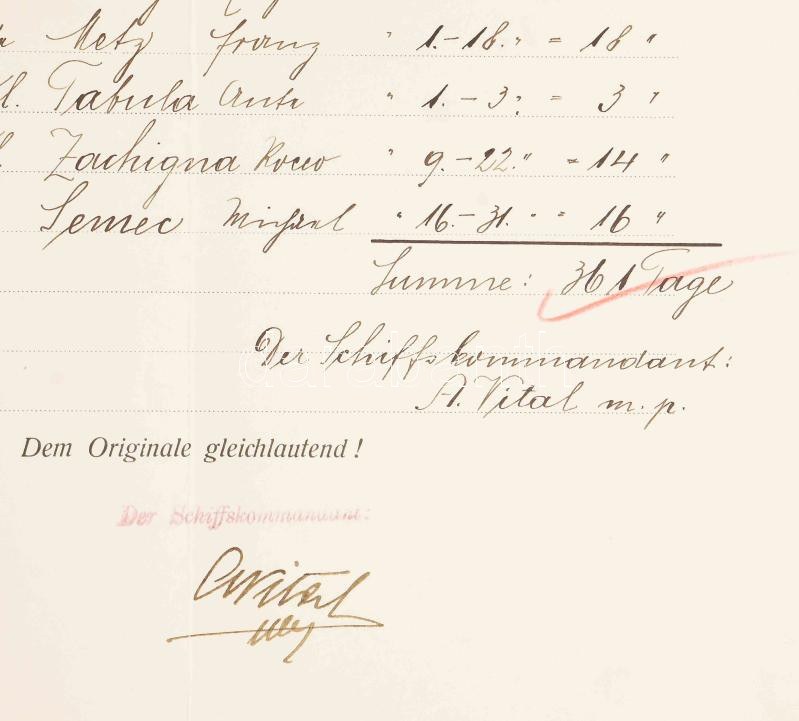 Metz Franz " 1.-18. " = 18 "
l. Tabula Ante " 1. - 3. " = 3 "
Zachigna Rocco " 9.-22. " = 14 "
Semec Michael " 16.-31. " = 16 "
Summe: 361 Tage
Der Schiffskommandant:
A. Vital m. p.
Dem Originale gleichlautend!
Der Schiffskommandant:
AVital